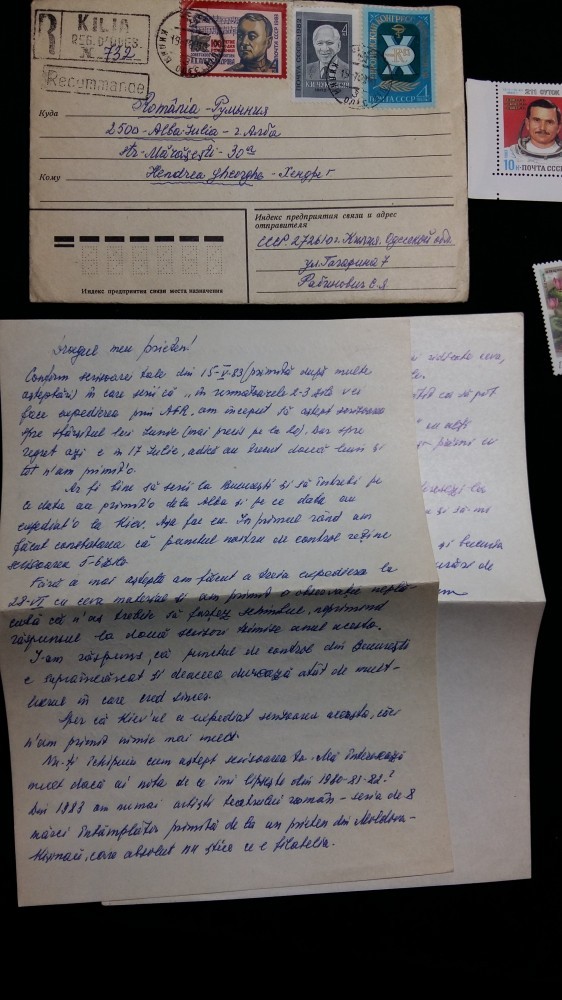 R
KILIA
REG. D'ODES.
№ 732
Recommandé
ПОЧТА СССР 1983
ПОЧТА СССР 1982
К.И. ЧУКОВСКИЙ
ПОЧТА СССР
4
211 СУТОК
10к ПОЧТА СССР
Куда România - Румыния
2500 - Alba Iulia - г. Алба
str. Mărăşeşti - 30
Кому Hendrea Gheorghe - Хендря Г
Индекс предприятия связи и адрес
отправителя
СССР 272610 г. Килия. Одесской обл.
ул. Гагарина 7
Рабинович Е.Я.
Индекс предприятия связи места назначения
Dragul meu prieten!
Conform scrisoarei tale din 15-V-83 (primită după multe
aşteptări) în care scrii că „în următoarele 2-3 zile vei
face expedierea prin AFR, am început să aştept scrisoarea
spre sfârşitul lui Iunie (mai precis pe la 20). Dar spre
regret azi e în 17 Iulie, adică au trecut două luni şi
tot n'am primit'o.
Ar fi bine să scrii la Bucureşti şi să întrebi pe
ce data au primit'o dela Alba şi pe ce data au
expediat'o la Kiev. Aşa fac eu. În primul rând am
făcut constatarea că punctul nostru de control reţine
scrisoarea 5-6 zile
Fără a mai aştepta am făcut a doua expediere la
28-VI cu ceva material şi am primit o observaţie neplă-
cută că n'aş trebui să forţez schimbul, neprimind
răspunsul la două scrisori trimise anul acesta.
I-am răspuns, că punctul de control din Bucureşti
e supraîncărcat şi deaceea durează atât de mult-
lucrul în care cred sincer.
Sper că Kiev'ul a expediat scrisoarea aceasta, căci
n'am primit nimic mai mult.
Nu-ţi închipui cum aştept scrisoarea ta. Mă interesează
mult dacă ai nota de ce îmi lipseşte din 1980-81-82?
Din 1983 am numai artişti teatrului român - seria de 8
mărci întâmplător primită de la un prieten din Moldova-
care absolut nu ştie ce e filatelia.